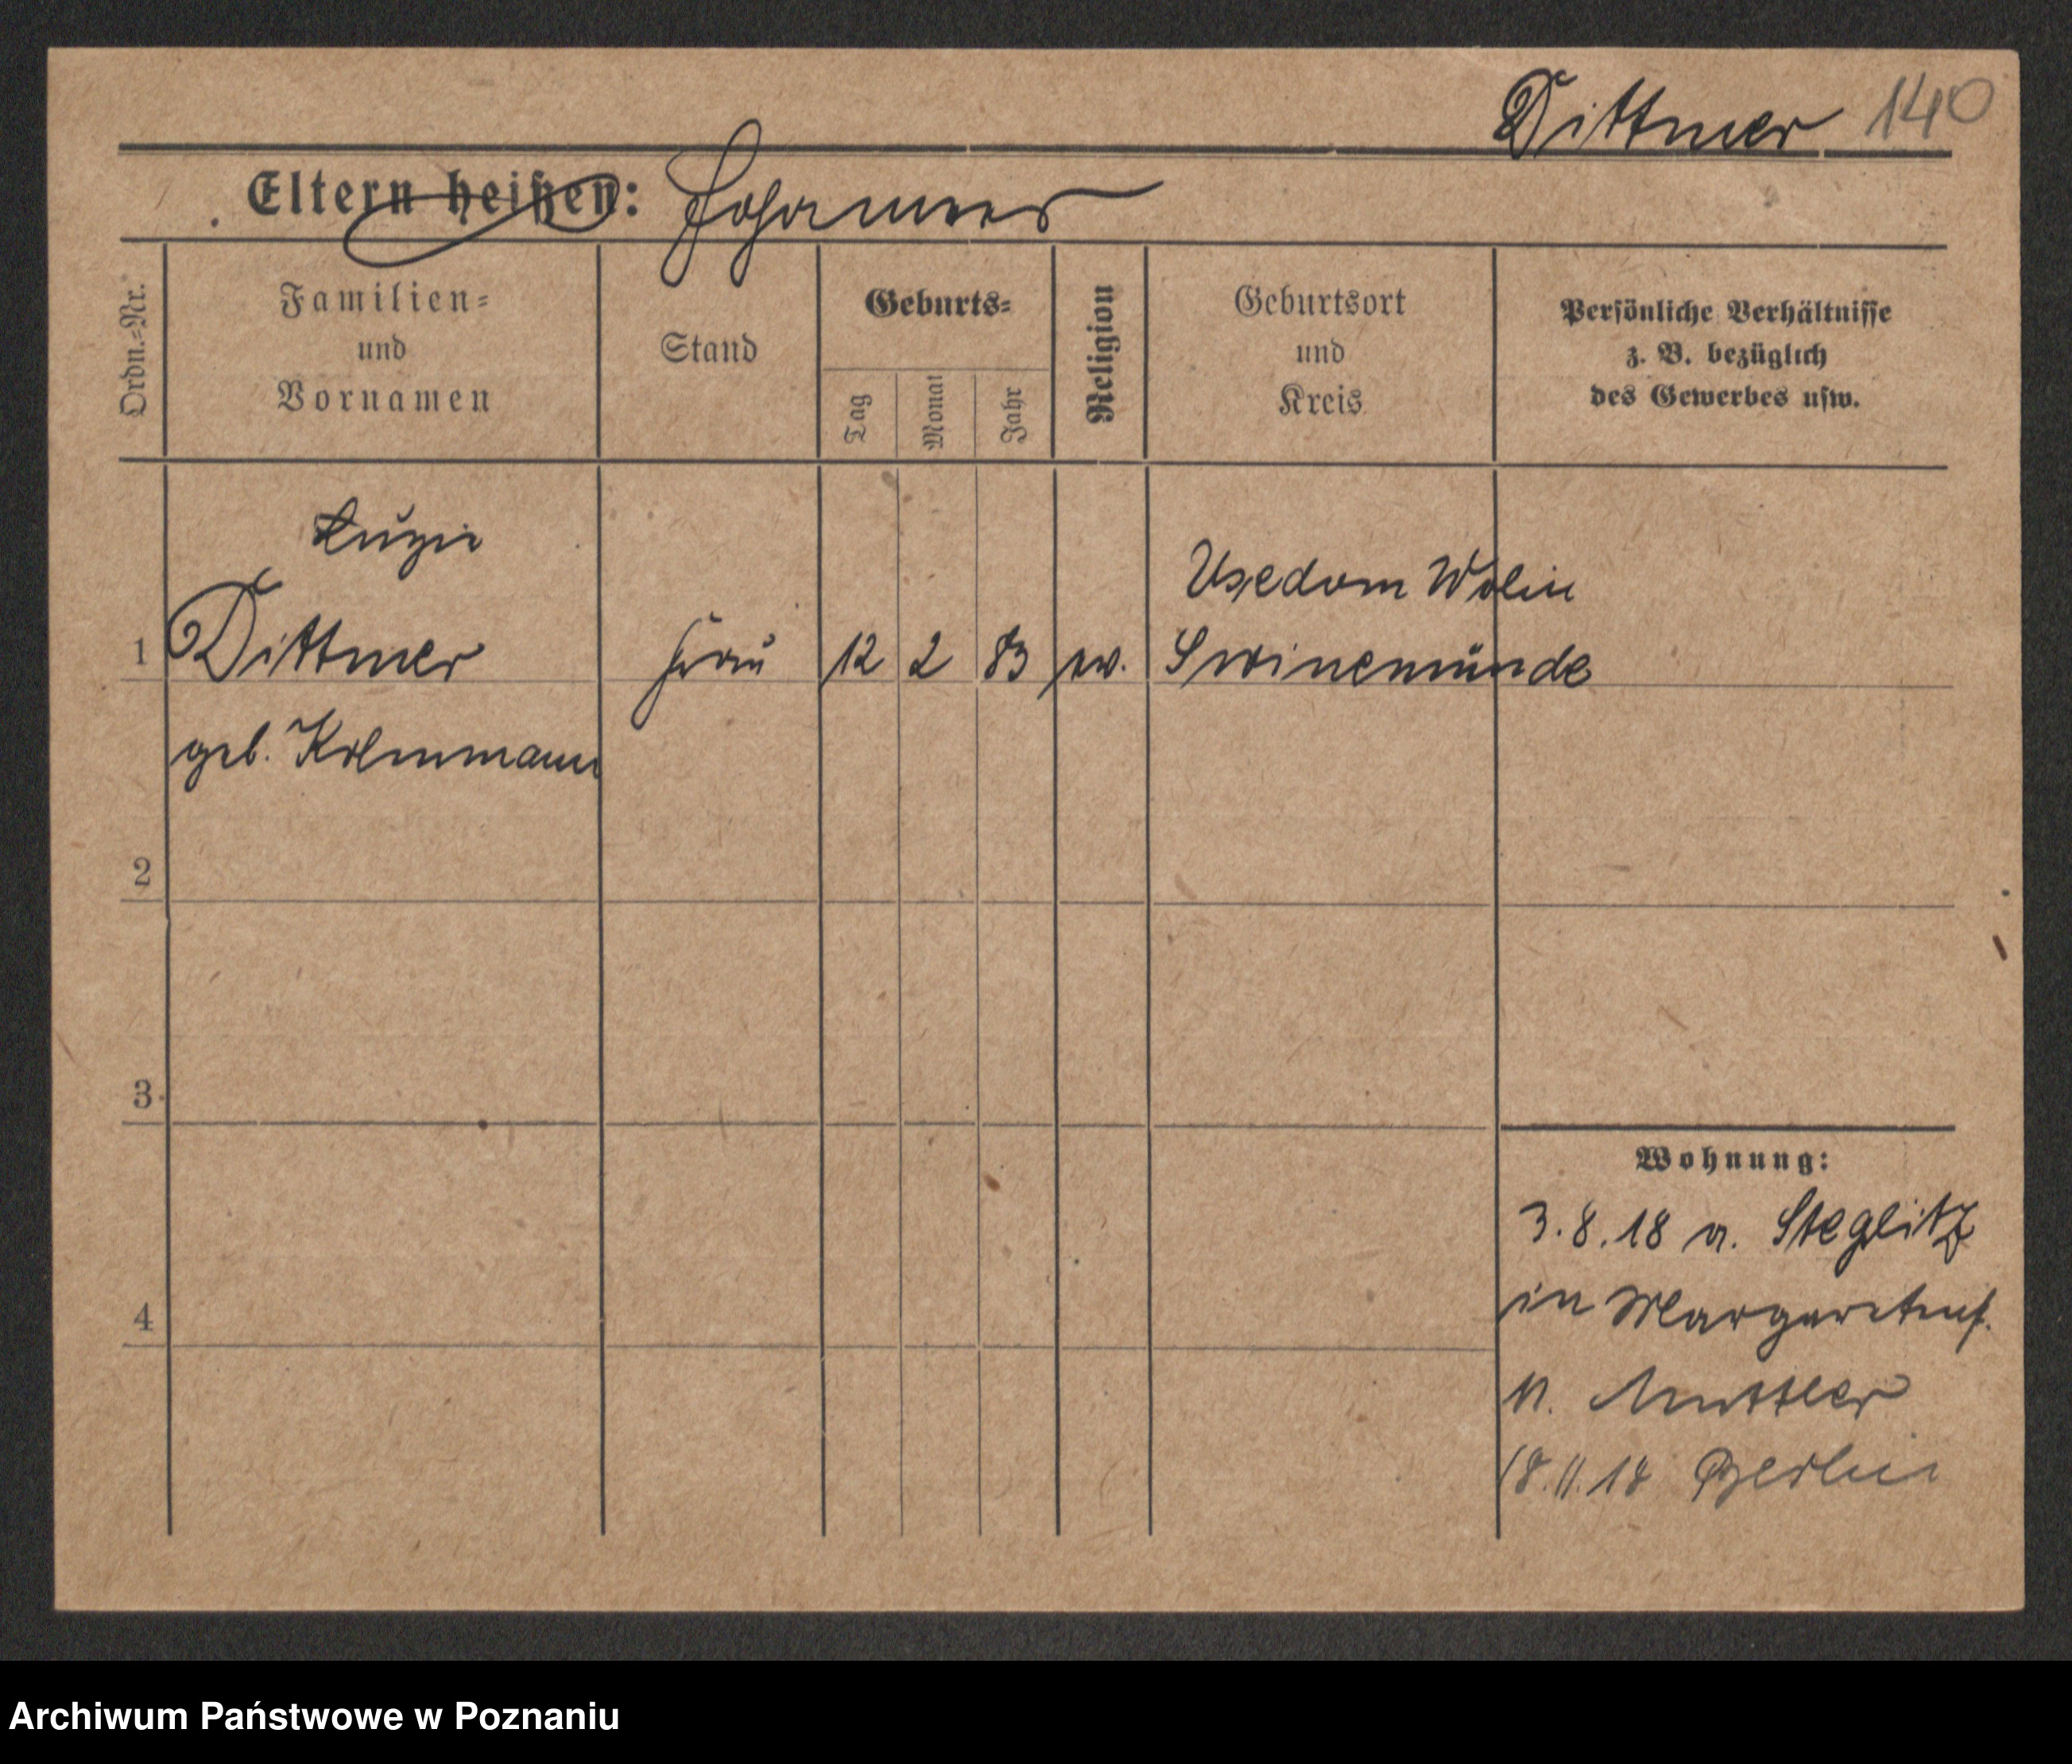 Dittmer 140
Eltern heißen: Johannes
Ordn.-Nr.
Familien-
und
Vornamen
Stand
Geburts-
Tag
Monat
Jahr
Religion
Geburtsort
und
Kreis
Persönliche Verhältnisse
z. B. bezüglich
des Gewerbes usw.
Luzie
Usedom Wolin
1 Dittmer Frau 12 2 83 ev. Swinemünde
geb.
2
3
4
Wohnung:
3.8.18 a. Steglitz
in Margaretenst.
n.
18.11.18 Berlin
Archiwum Państwowe w Poznaniu